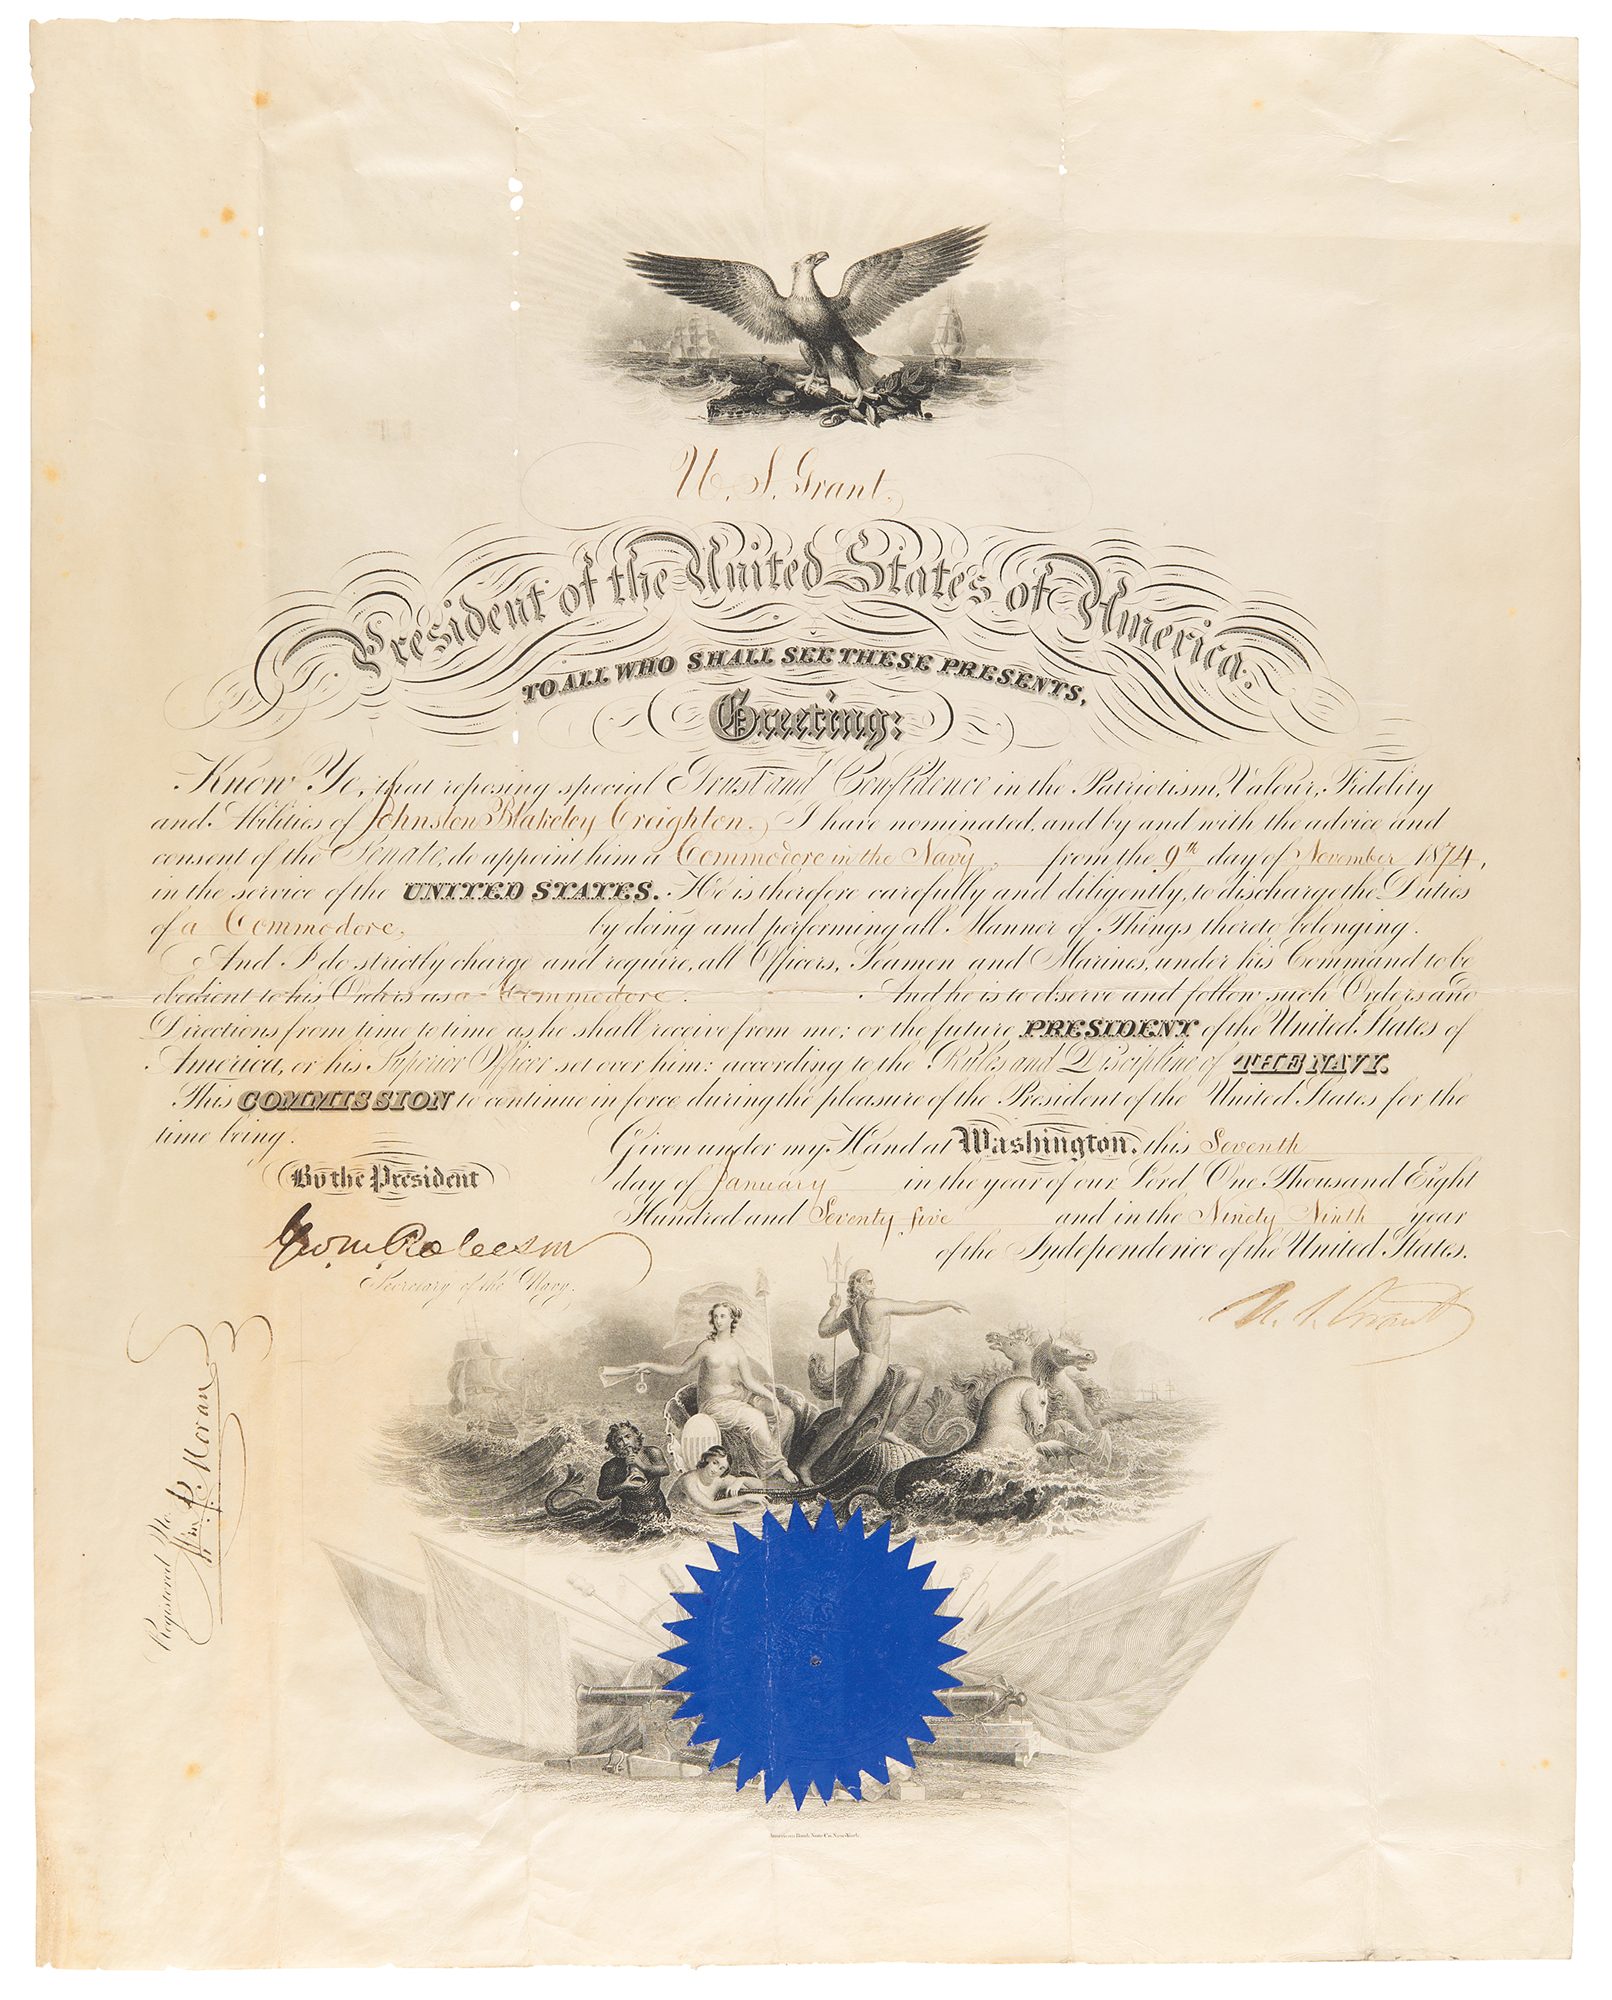 U. S. Grant.
President of the United States of America.
TO ALL WHO SHALL SEE THESE PRESENTS,
Greeting:
Know Ye, that reposing special Trust and Confidence in the Patriotism, Valour, Fidelity
and Abilities of Johnston Blakeley Creighton. I have nominated, and by and with the advice and
consent of the Senate, do appoint him a Commodore in the Navy, from the 9th day of November 1874,
in the service of the UNITED STATES. He is therefore carefully and diligently, to discharge the Duties
of a Commodore, by doing and performing all Manner of Things thereto belonging.
And I do strictly charge and require, all Officers, Seamen and Marines, under his Command to be
obedient to his Orders as a Commodore. And he is to observe and follow such Orders and
Directions from time to time as he shall receive from me; or the future PRESIDENT of the United States of
America, or his Superior Officer set over him: according to the Rules and Discipline of THE NAVY.
This COMMISSION to continue in force during the pleasure of the President of the United States for the
time being.
Given under my Hand at Washington, this Seventh
day of January in the year of our Lord One Thousand Eight
Hundred and Seventy five and in the Ninety Ninth year
of the Independence of the United States.
By the President
U. S. Grant
Geo. M. Robeson
Secretary of the Navy.
Registered No.
Wm. P. Moran
American Bank Note Co. New York.